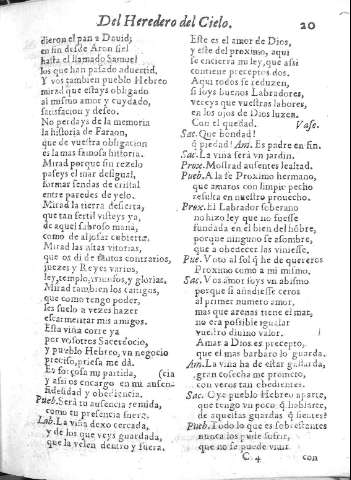 Del Heredero del Cielo.
20
dieron el pan a Dauid;
en fin desde Aron fiel
hasta el llamado Samuel
los que han passado aduertid.
Y vos tambien pueblo Hebreo
mirad que estays obligado
al mismo amor y cuydado,
satisfacion y deseo.
No perdays de la memoria
la historia de Faraon,
que de vuestra obligacion
es la mas famosa historia.
Mirad porque sin rezelo
paseys el mar desigual,
formar sendas de cristal
entre paredes de yelo.
Mirad la tierra desierta,
que tan fertil visteys ya,
de aquel sabroso manà,
como de aljofar cubierta.
Mirad las altas vitorias,
que os di de contrarios,
juezes y Reyes varios,
ley, templo, triunfos, y glorias.
Mirad tambien los castigos,
que como tengo poder,
les suelo a vezes hazer
escarmentar mis amigos.
Esta viña corre ya
por vosotros Sacerdocio,
y pueblo Hebreo, vn negocio
preciso, priesa me dà.
Es forçosa mi partida, (cia
y assi os encargo en mi ausen-
fidelidad y obediencia.
Pueb. Serà tu ausencia temida,
como tu presencia fuera.
Lab. La viña dexo cercada,
y de los que veys guardada,
que la velen dentro y fuera.
Este es el amor de Dios,
y este del proximo, aqui
se encierra mi ley, que assi
contiene preceptos dos.
Aqui todos se reduzen,
si soys buenos Labradores,
vereys que vuestras labores,
en los ojos de Dios luzen.
Con el quedad. Vase.
Sac. Que bondad!
q̃ piedad! Am. Es padre en fin.
Sac. La viña serà vn jardin.
Prox. Mostrad ausentes lealtad.
Pueb. A la fe Proximo hermano,
que amaros con limpio pecho
resulta en nuestro prouecho.
Prox. El Labrador soberano
no hizo ley que no fuesse
fundada en el bien del hōbre,
porque ninguno se assombre,
que a obedecer las viniesse.
Pue. Voto al sol q̃ he de quereros
Proximo como a mi mismo,
Sac. Vos amor soys vn abismo
porque si añadiesse ceros
al primer numero amor,
mas que arenas tiene el mar,
no era possible igualar
vuestro diuino valor.
Amar a Dios es precepto,
que el mas barbaro lo guarda.
Am. La viña ha de estar gallarda,
gran cosecha me prometo,
con veros tan obedientes.
Sac. Oye pueblo Hebreo aparte,
que tengo vn poco q̃ hablarte,
de aquestas guardas q̃ sientes?
Pueb. Todo lo que es sobrestantes
nunca los pude sufrir,
que no se puede viuir
C 4
con